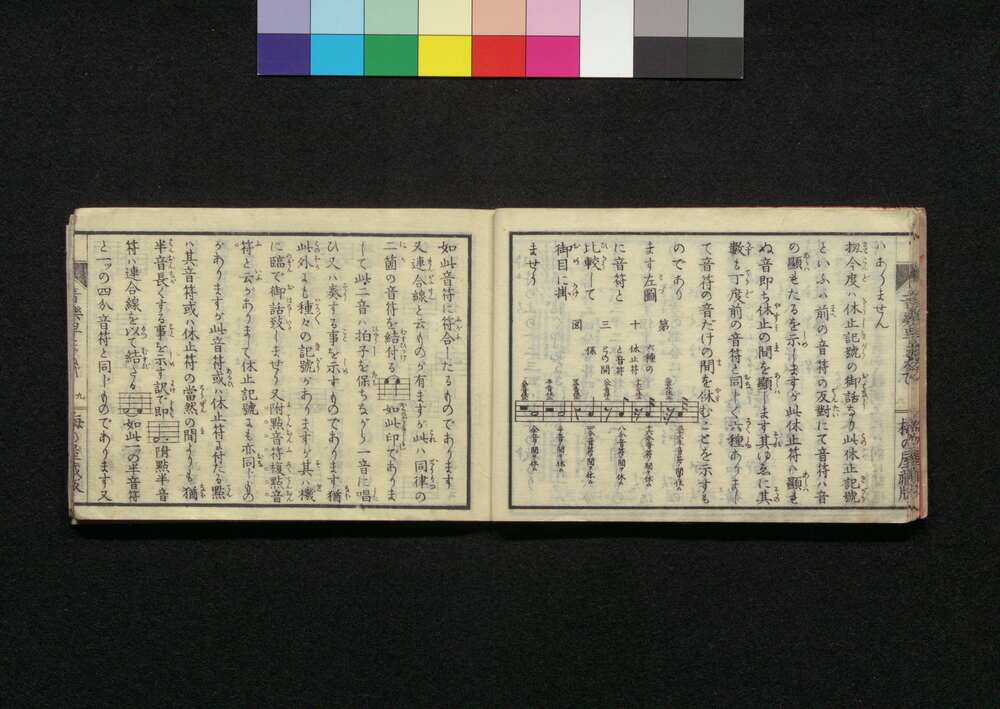 ハありません
扨今度ハ休止記號の御話なり此休止記號
といふハ前の音符の反對にて音符ハ音
の顯せたるを示しますが此休止符ハ顯せ
ぬ音即ち休止の間を顯します其ゆゑに其
數も丁度前の音符と同しく六種ありまし
て音符の音だけの間を休むことを示すも
のであり
ます左圖
に音符と
比較して
御目に掛
ませう
第
十
三
図
六種の
休止符
と音符
との關
係
如此音符に符合したるものであります
又連合線と云ものが有ますが此ハ同律の
二箇の音符を結付る
如此印でありま
して此二音ハ拍子を保ちながら一音に唱
ひ又ハ奏する事を示すものであります猶
此外にも種々の記號がありますが其ハ機
に臨で御話致しませう又附點音符複點音
符と云がありまして休止記號にも亦同じもの
がありますが此音符或ハ休止符に付たる點
ハ其音符或ハ休止符の當然の間よりも猶
半音長くする事を示す訳で即
附點半音
符ハ連合線を以て結たる
如此一の半音符
と一ツの四分音符と同しものであります又
九